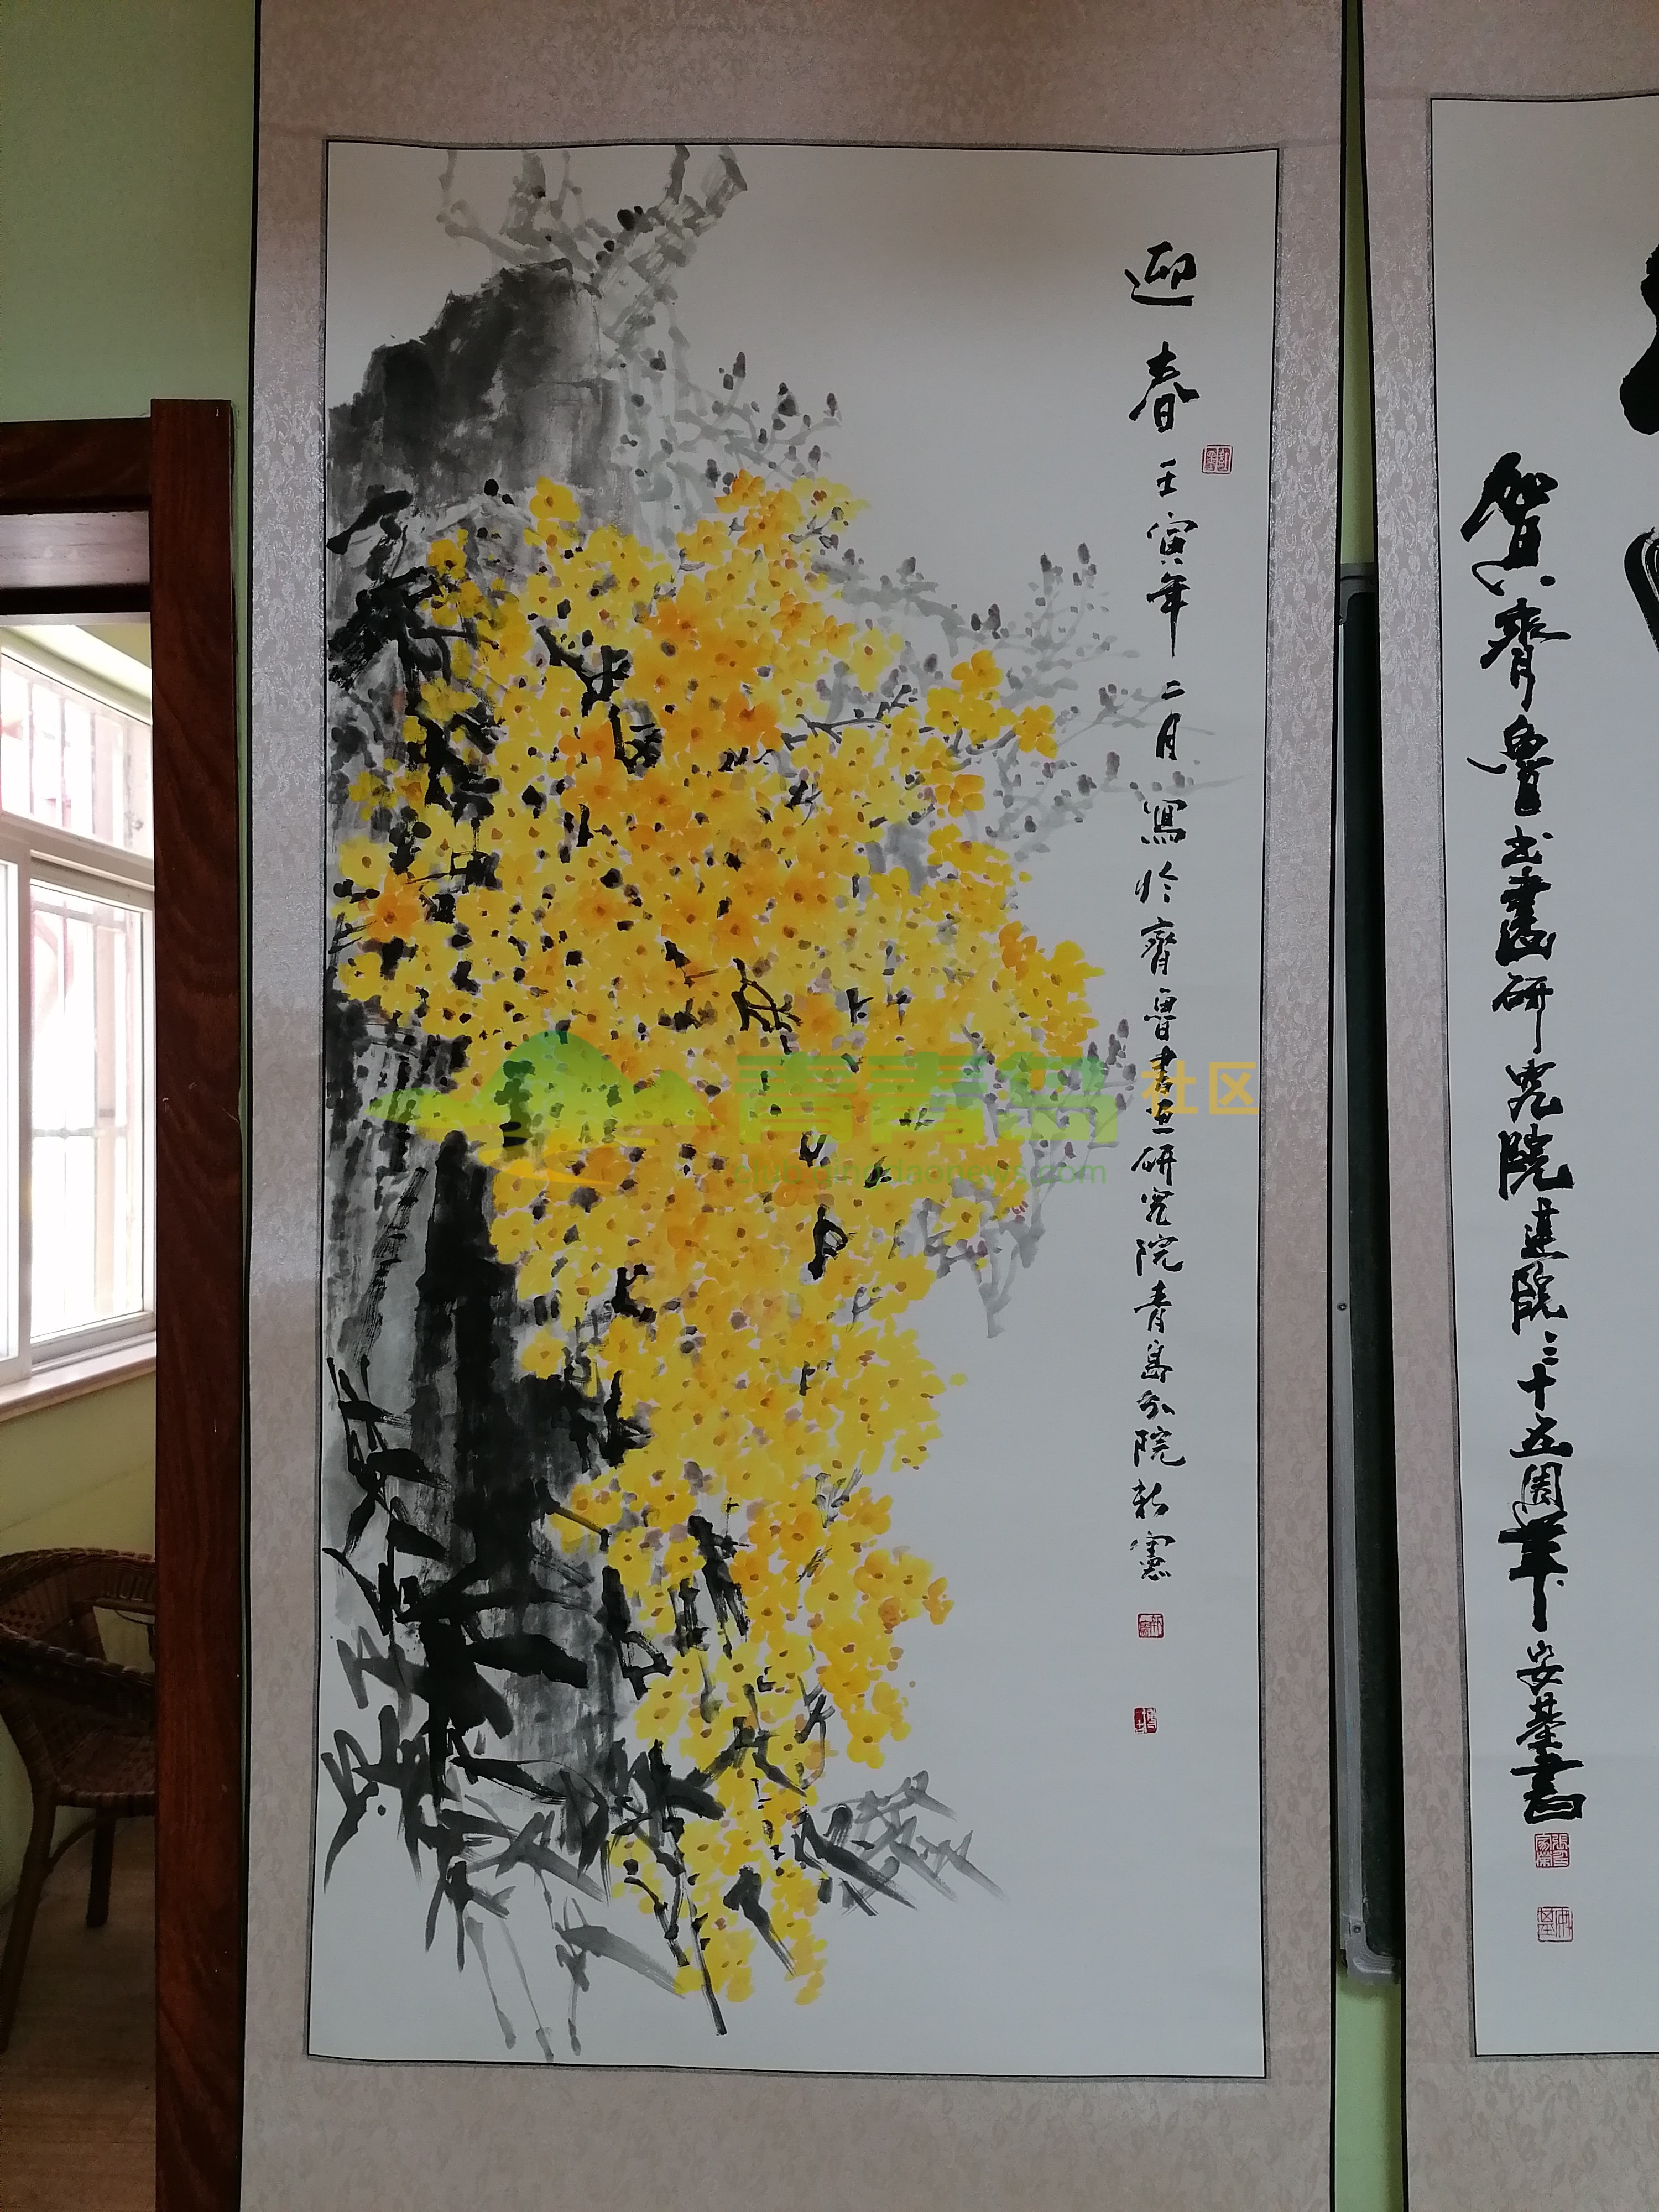 迎春
壬寅年二月寫於齊魯書画研究院青島分院新憲
賀齊魯书畫研究院建院三十五周年安基書
青青岛社区
club.qingdaonews.com